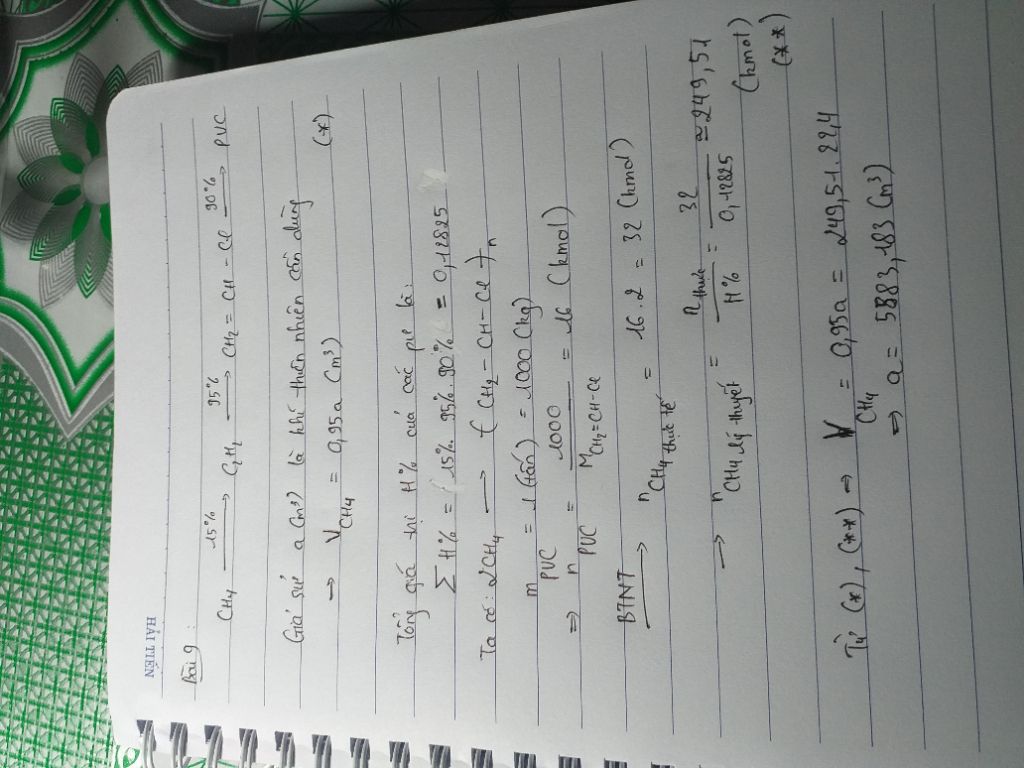 HẢI TIẾN
Bài 9:
CH₄ —15%→ C₂H₂ —95%→ CH₂ = CH - Cl —90%→ PVC
Giả sử a (m³) là khí thiên nhiên cần dùng
→ V CH₄ = 0,95a (m³) (*)
Tổng giá trị H% của các pư là:
∑ H% = 15%. 95%. 90% = 0,12825
Ta có: 2CH₄ → ( CH₂ - CH - Cl )n
m PVC = 1 (tấn) = 1000 (kg)
⇒ n PVC = 1000 / M CH₂=CH-Cl = 16 (kmol)
BTNT → n CH₄ thực tế = 16.2 = 32 (kmol)
→ n CH₄ lý thuyết = n thực / H% = 32 / 0,12825 ≈ 249,51 (kmol) (**)
Từ (*), (**) → V CH₄ = 0,95a = 249,51.22,4
⇒ a = 5883,183 (m³)